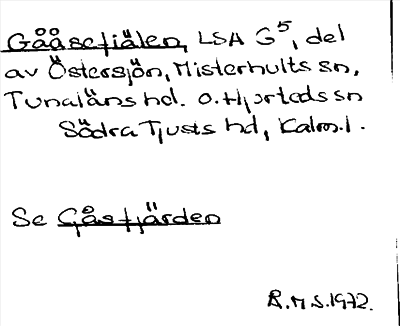 Gååsefiälen, LSA G5, del
av Östersjön, Misterhults sn,
Tunaläns hd. o. Hjorteds sn
Södra Tjusts hd, Kalm.l.
Se Gåsfjärden
R.M S.1972.